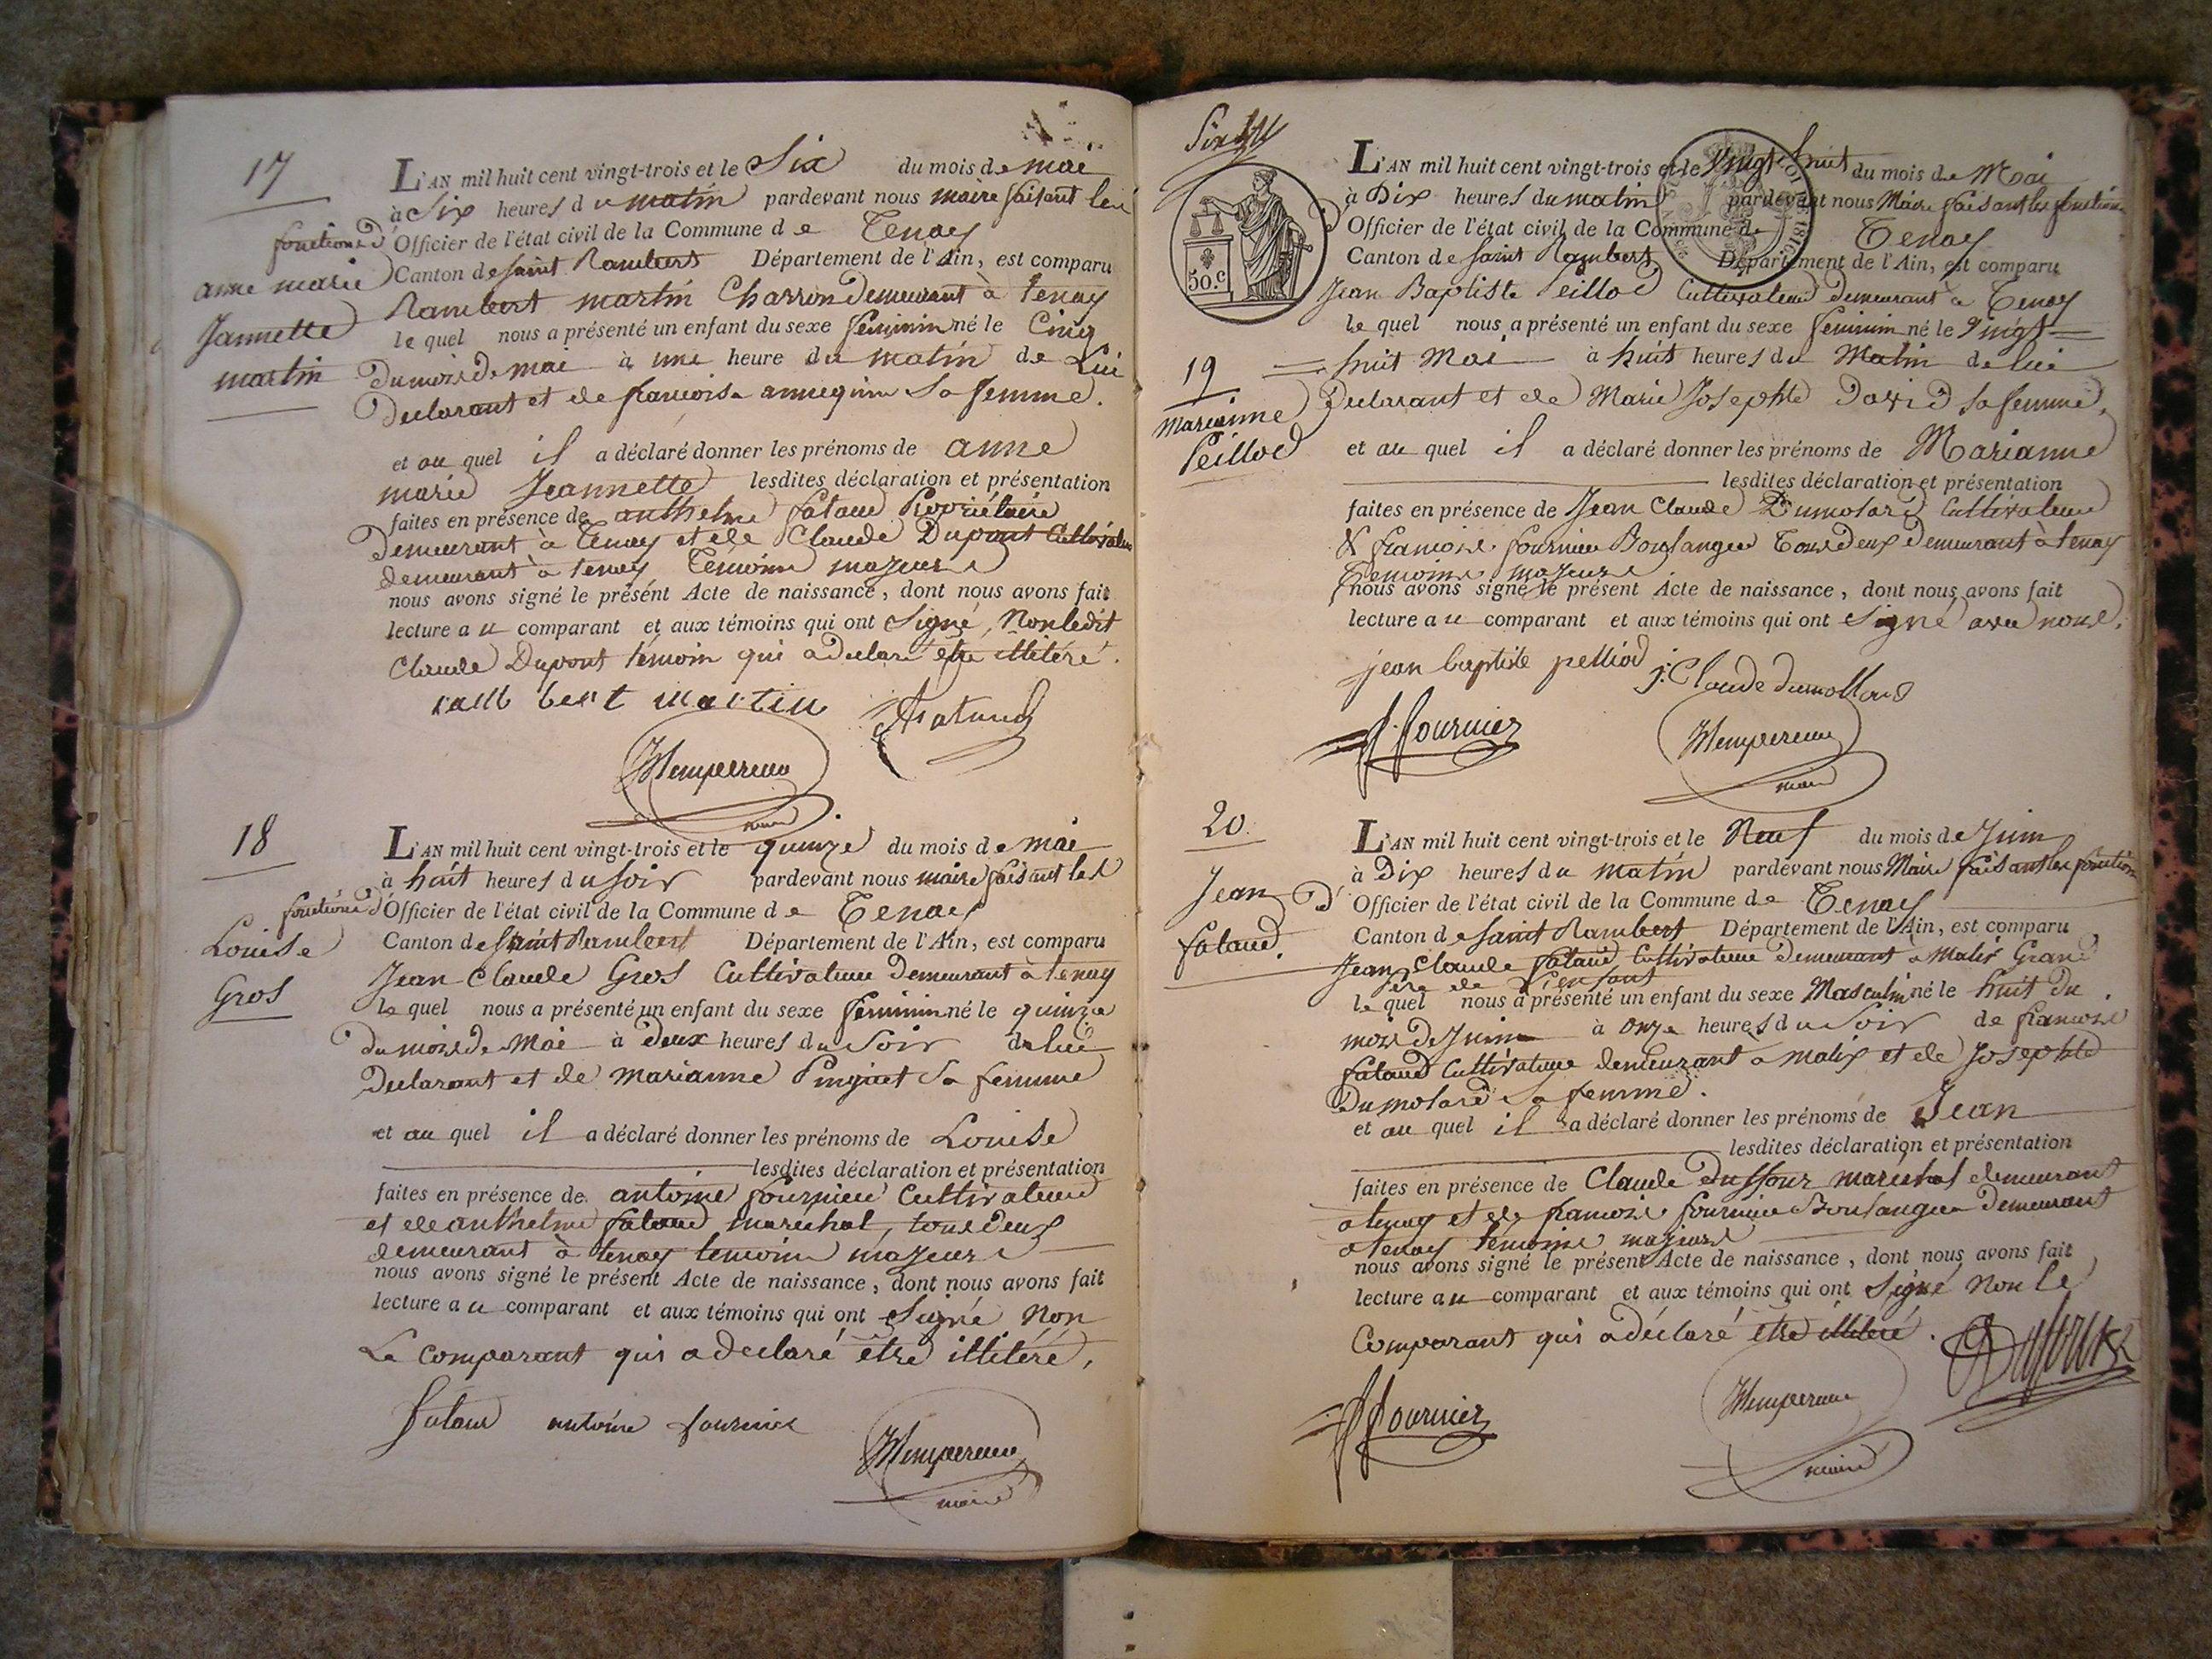 17
L'AN mil huit cent vingt-trois et le Six du mois de mai
à Six heures du matin pardevant nous maire faisant les
fonctions d'Officier de l'état civil de la Commune de Tenay
anne marie
Jannette
martin
Canton de saint Rambert Département de l'Ain, est comparu
Rambert martin Charron demeurant à tenay
lequel nous a présenté un enfant du sexe féminin né le Cinq
du mois de mai à une heure du matin de Lui
Declarant et de francoise annequin Sa femme.
et auquel il a déclaré donner les prénoms de anne
marie Jeannette lesdites déclaration et présentation
faites en présence de anthelme fataud Propriétaire
Demeurant à Tenay et de Claude Dupont Cultivateur
demeurant à tenay Témoins majeurs
nous avons signé le présent Acte de naissance, dont nous avons fait
lecture au comparant et aux témoins qui ont Signé, Non ledit
Claude Dupont témoin qui a declaré être illitéré.
rambert martin
maire
18
L'AN mil huit cent vingt-trois et le quinze du mois de mai
à huit heures du soir pardevant nous maire faisant les
fonctions d'Officier de l'état civil de la Commune de Tenay
Louise
Gros
Canton de saint Rambert Département de l'Ain, est comparu
Jean Claude Gros Cultivateur Demeurant à tenay
lequel nous a présenté un enfant du sexe féminin né le quinze
du mois de Mai à Deux heures du Soir de lui
Declarant et de Marianne Pinguet Sa femme
et auquel il a déclaré donner les prénoms de Louise
lesdites déclaration et présentation
faites en présence de antoine fournier Cultivateur
et de anthelme fataud marechal, tous deux
demeurant à tenay temoins majeurs
nous avons signé le présent Acte de naissance, dont nous avons fait
lecture au comparant et aux témoins qui ont Signé Non
Le comparant qui a declaré être illitéré.
fataud antoine fournier
maire
50.c
L'AN mil huit cent vingt-trois et le Vingt huit du mois de Mai
à Dix heures du matin pardevant nous Maire faisant les fonctions
d'Officier de l'état civil de la Commune de Tenay
Canton de saint Rambert Département de l'Ain, est comparu
Jean Baptiste Peillod Cultivateur Demeurant à Tenay
lequel nous a présenté un enfant du sexe féminin né le Vingt
19
Marianne
Peillod
huit Mai à huit heures du Matin de lui
Declarant et de Marie Josephte David sa femme,
et auquel il a déclaré donner les prénoms de Marianne
lesdites déclaration et présentation
faites en présence de Jean Claude Dumolard Cultivateur
& francois fournier Boulanger Tous deux demeurant à tenay
Temoins majeurs
nous avons signé le présent Acte de naissance, dont nous avons fait
lecture au comparant et aux témoins qui ont Signé avec nous.
jean baptiste pelliod
j: Claude dumollard
f. fournier
maire
20.
Jean
fataud.
L'AN mil huit cent vingt-trois et le Neuf du mois de Juin
à Dix heures du matin pardevant nous Maire faisant les fonctions
d'Officier de l'état civil de la Commune de Tenay
Canton de saint Rambert Département de l'Ain, est comparu
Jean Claude fataud Cultivateur Demeurant a Malix Grand
père de l'enfant
lequel nous a présenté un enfant du sexe Masculin né le huit du
mois de Juin à onze heures du Soir de francois
fataud Cultivateur demeurant a malix et de Josephte
Dumolard sa femme.
et auquel il a déclaré donner les prénoms de Jean
lesdites déclaration et présentation
faites en présence de Claude Duffour maréchal demeurant
a tenay et de francois fournier Boulanger Demeurant
a tenay témoins majeurs
nous avons signé le présent Acte de naissance, dont nous avons fait
lecture au comparant et aux témoins qui ont Signé Non le
Comparant qui a déclaré être illitéré.
f fournier
maire